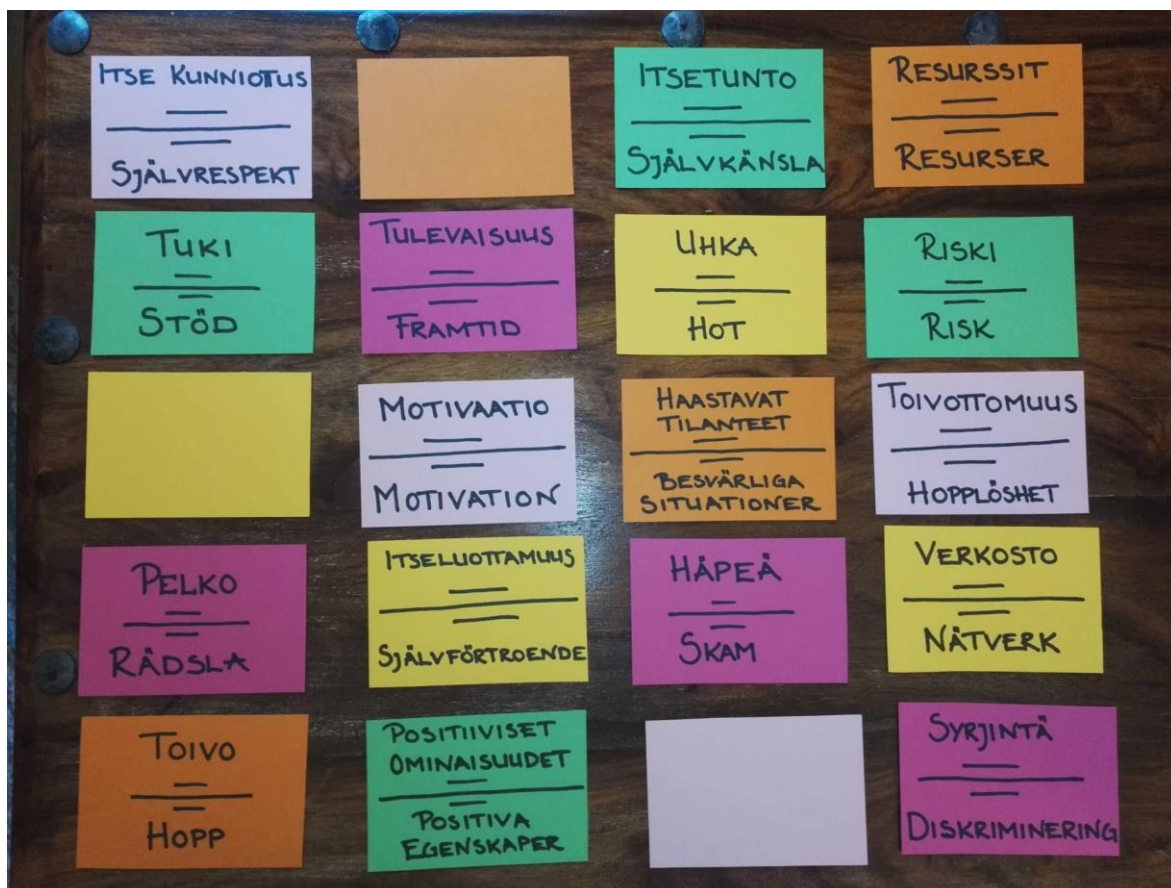 ITSE KUNNIOTUS
SJÄLVRESPEKT
ITSETUNTO
SJÄLVKÄNSLA
RESURSSIT
RESURSER
TUKI
STÖD
TULEVAISUUS
FRAMTID
UHKA
HOT
RISKI
RISK
MOTIVAATIO
MOTIVATION
HAASTAVAT
TILANTEET
BESVÄRLIGA
SITUATIONER
TOIVOTTOMUUS
HOPPLÖSHET
PELKO
RÄDSLA
ITSELUOTTAMUUS
SJÄLVFÖRTROENDE
HÄPEÄ
SKAM
VERKOSTO
NÄTVERK
TOIVO
HOPP
POSITIIVISET
OMINAISUUDET
POSITIVA
EGENSKAPER
SYRJINTÄ
DISKRIMINERING